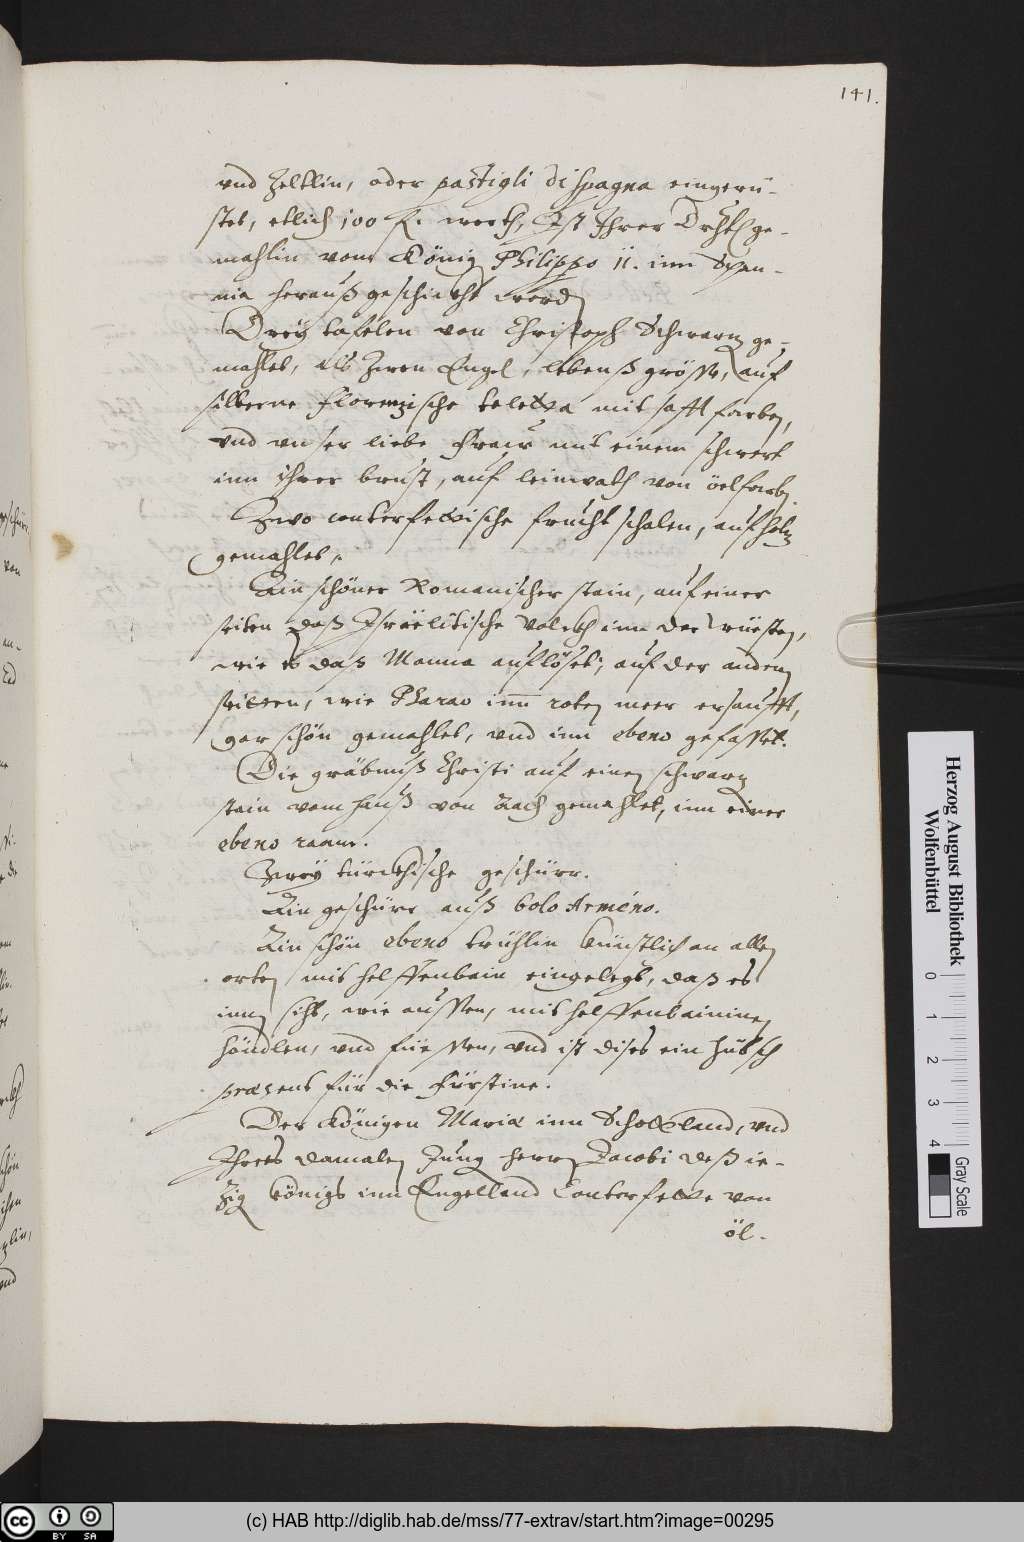 141.
vnd Zeltlin, oder pastigli di spagna eingerü-
stet, etlich 100 fl. werth, Ist Ihrer Drhtl. ge-
mahlin vom König Philippo II. inn Span-
nia herauß geschickht worden
Drey tafelen von Christoph Schwarz ge-
mahlet, als Zwen Engel, lebens größe, auf
silberne florenzische teletta mit safft farben,
vnd vnser liebe Fraw mit einem schwert
inn Ihrer brust, auf leinwath von öelfarben.
Zwo conterfettische frucht schalen, auf holz
gemahlet.
Ein schöner Romanischer stain, auf einer
seiten daß Israëlitische Volckh inn der wüesten,
wie es daß Manna auflöset; auf der andern
seitten, wie Pharao im roten meer ersaufft,
gar schön gemahlet, vnd inn ebeno gefasset.
Die gräbnuß Christi auf einen schwarz
stain vom Hanß von Aach gemahlet, inn einer
ebeno ramm.
Zwey türckhische geschürr.
Ein geschürr auß bolo Arméno.
Ein schön ebeno trühlin künstlich an allen
orten mit helffenbain eingelegt, daß es
innen sicht, wie aussen, mit helffenbaininen
händlen, vnd füessen, vnd ist dises ein hübsch
præsent für die Fürstine.
Der Königen Maria inn Schottland, vnd
Ihres damalen Jung herrn Jacobi deß ie-
zig königs inn Engelland Conterfette von
öl-
Herzog August Bibliothek
Wolfenbüttel
0 1 2 3 4
Gray Scale
cc BY SA
(c) HAB http://diglib.hab.de/mss/77-extrav/start.htm?image=00295